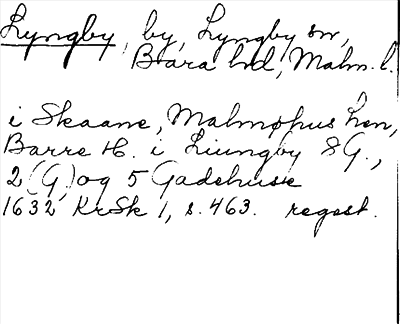 Lyngby, by, Lyngby sn,
Bara hd, Malm. l.
i Skaane, Malmøhus Len,
Barre H. i Liungby 8 G.,
2 (G) og 5 Gadehuse
1632 KrSk 1, s. 463. regest.